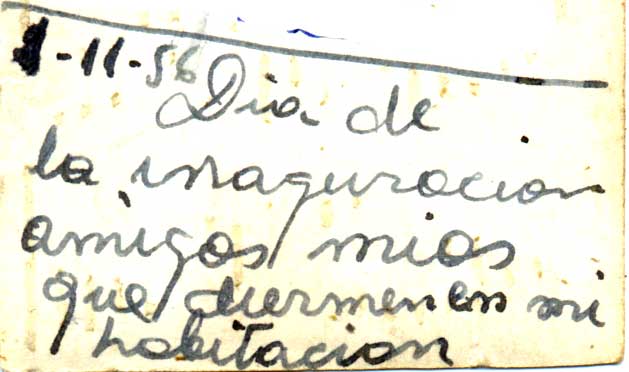 1-11-56
Dia de
la inaguracion
amigos mios
que duermen en mi
habitacion